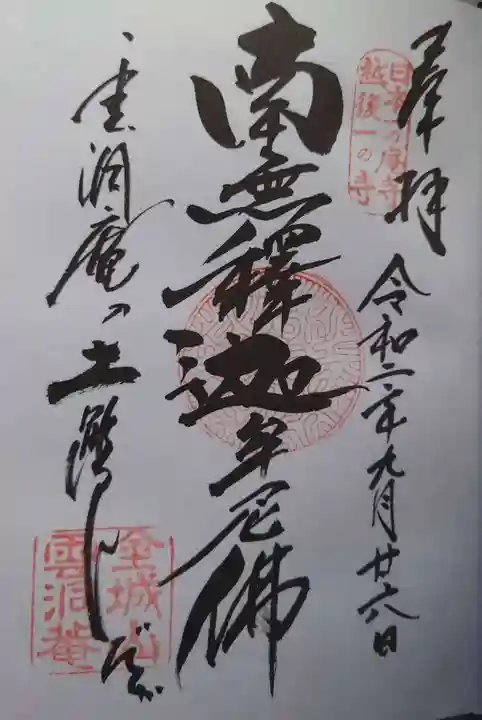 奉拝
日本一の庭寺
越後一の寺
令和二年九月廿六日
南無釋迦牟尼佛
雲洞庵の土踏んだ
金城山
雲洞菴